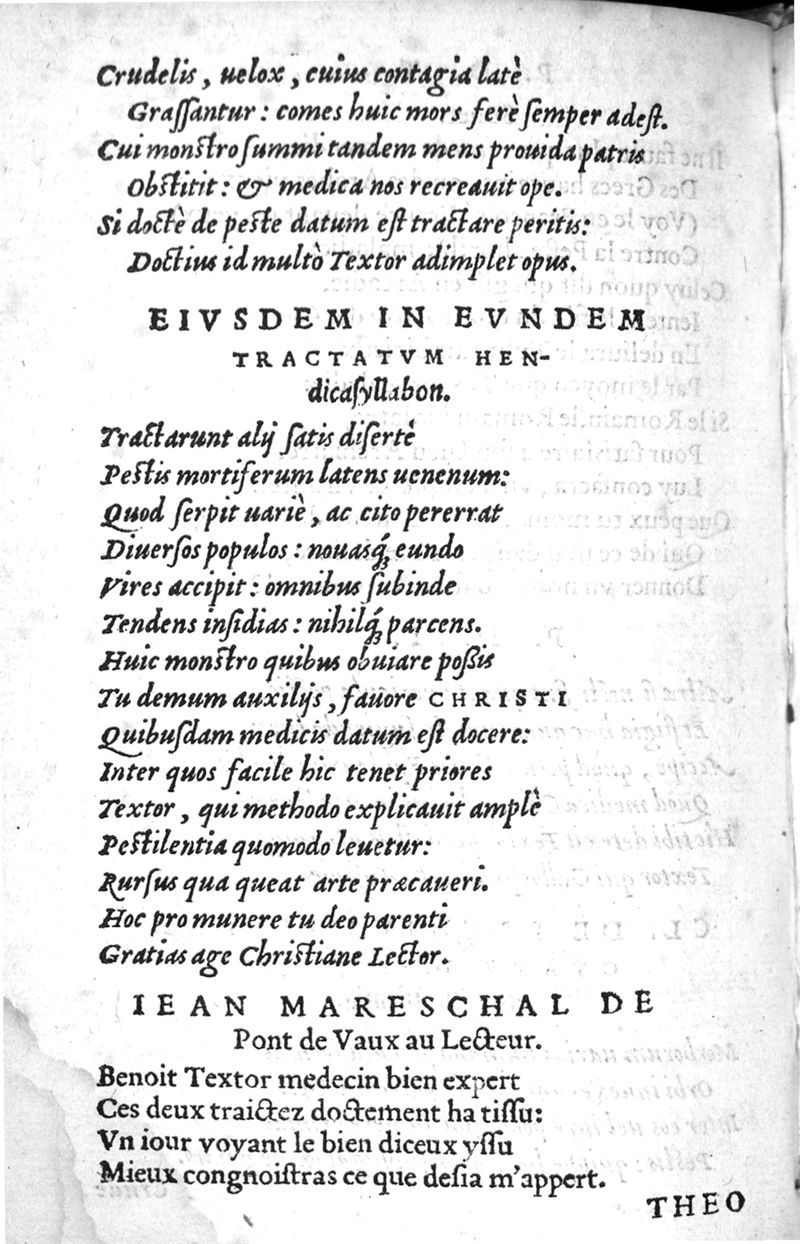 Crudelis, uelox, cuius contagia latè
Graſſantur: comes huic mors ferè ſemper adeſt.
Cui monſtro ſummi tandem mens prouida patris
Obſtitit: & medica nos recreauit ope.
Si doctè de peſte datum eſt tractare peritis:
Doctius id multò Textor adimplet opus.
EIVSDEM IN EVNDEM
TRACTATVM HEN-
dicaſyllabon.
Tractarunt alij ſatis diſertè
Peſtis mortiferum latens uenenum:
Quod ſerpit uariè, ac cito pererrat
Diuerſos populos: nouasq́; eundo
Vires accipit: omnibus ſubinde
Tendens inſidias: nihilq́; parcens.
Huic monſtro quibus obuiare poßis
Tu demum auxilijs, fauore CHRISTI
Quibuſdam medicis datum eſt docere:
Inter quos facile hic tenet priores
Textor, qui methodo explicauit amplè
Peſtilentia quomodo leuetur:
Rurſus qua queat arte præcaueri.
Hoc pro munere tu deo parenti
Gratias age Chriſtiane Lector.
IEAN MARESCHAL DE
Pont de Vaux au Lecteur.
Benoit Textor medecin bien expert
Ces deux traictez doctement ha tiſſu:
Vn iour voyant le bien diceux yſſu
Mieux congnoiſtras ce que deſia m'appert.
THEO